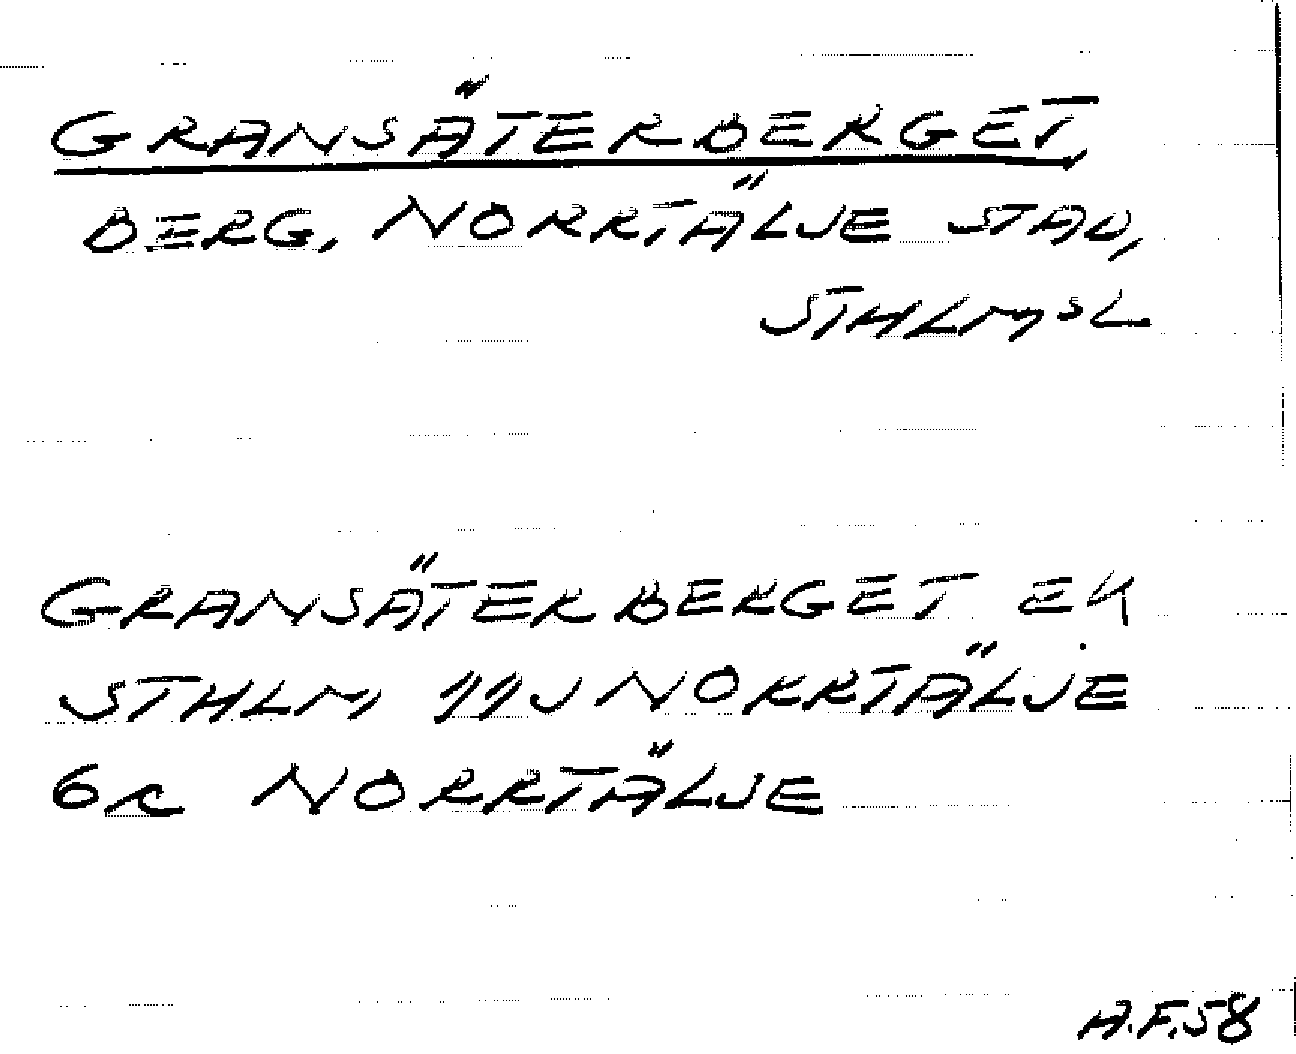 GRANSÄTERBERGET,
BERG, NORRTÄLJE STAD,
STHLMSL
GRANSÄTERBERGET EK
STHLM 11J NORRTÄLJE
6c NORRTÄLJE
A.F.58